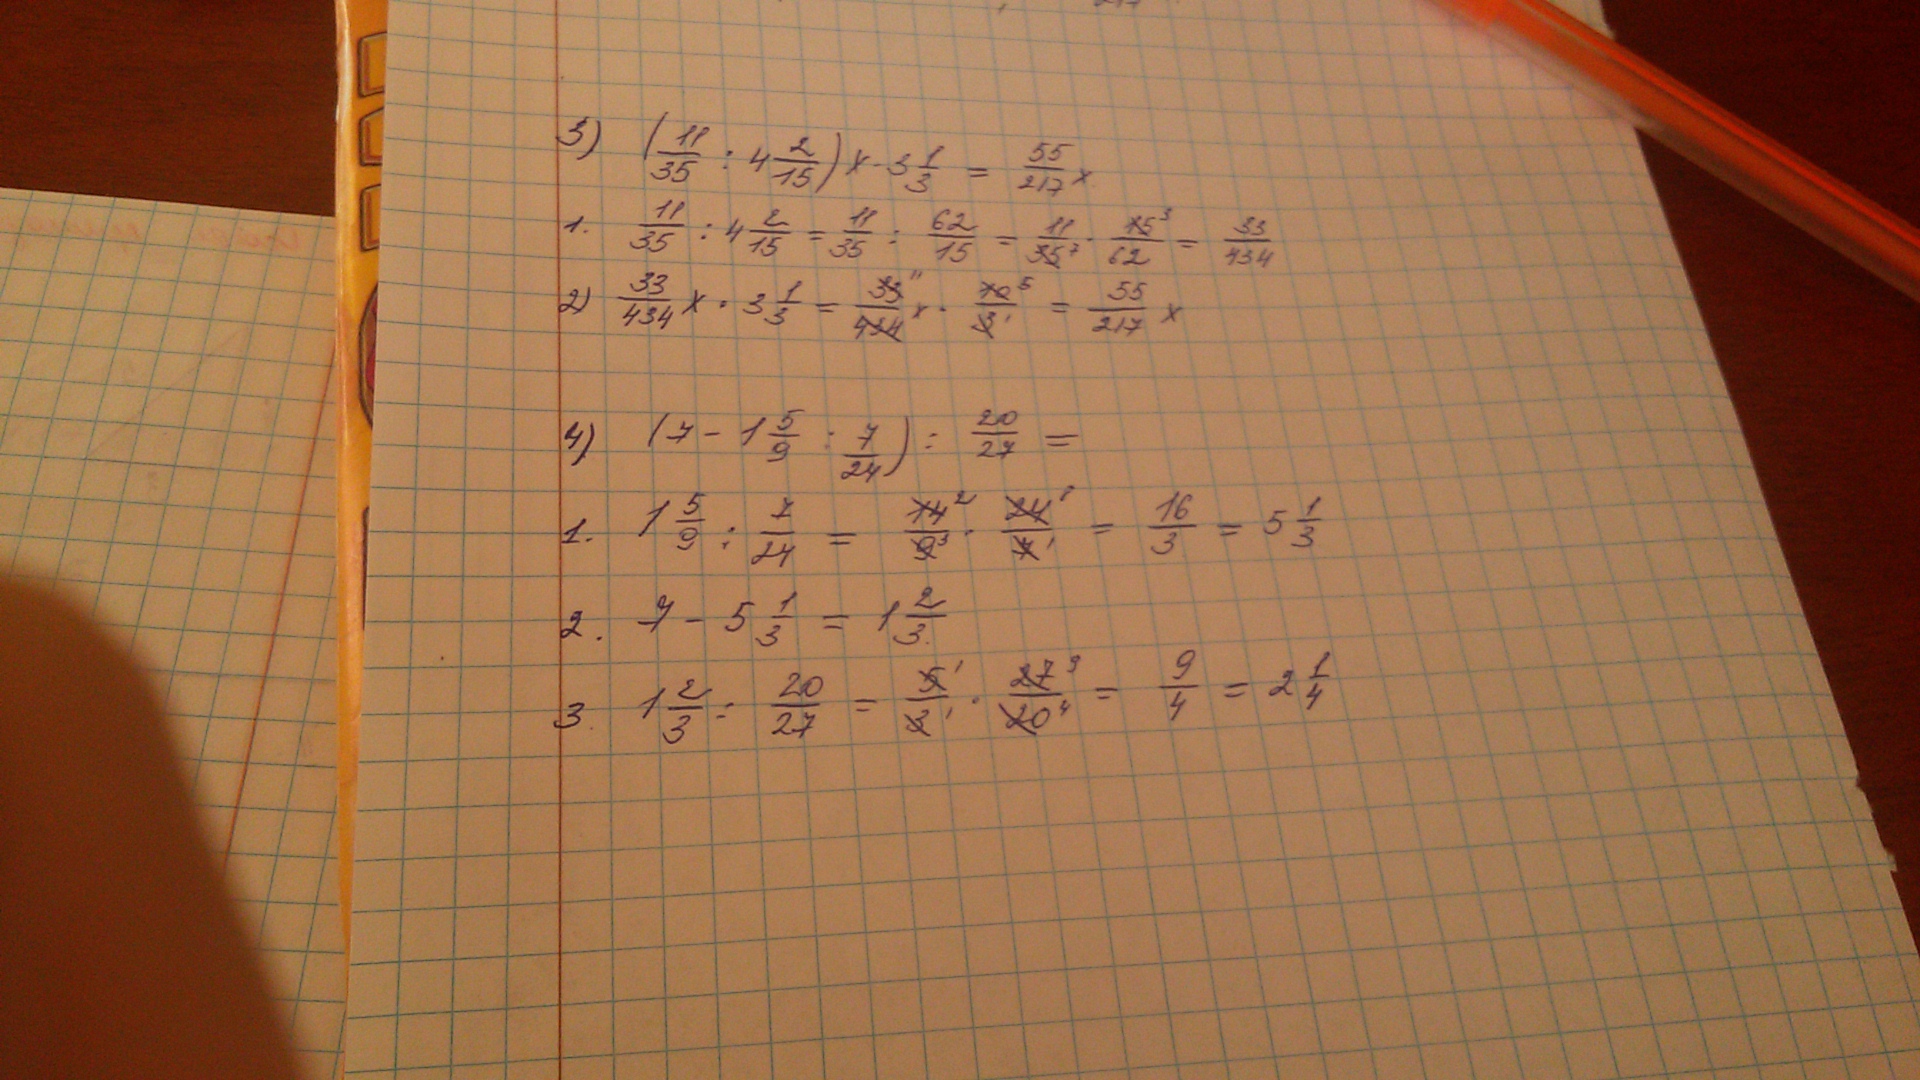 3) (11/35 : 4 2/15) x · 3 1/3 = 55/217 x
1. 11/35 : 4 2/15 = 11/35 : 62/15 = 11/35⁷ · 15³/62 = 33/434
2) 33/434 x · 3 1/3 = 33¹¹/434 x · 10⁵/3¹ = 55/217 x
4) (7 - 1 5/9 : 7/24) : 20/27 =
1. 1 5/9 : 7/24 = 14²/9³ · 24⁸/7¹ = 16/3 = 5 1/3
2. 7 - 5 1/3 = 1 2/3
3. 1 2/3 : 20/27 = 5¹/3¹ · 27⁹/20⁴ = 9/4 = 2 1/4